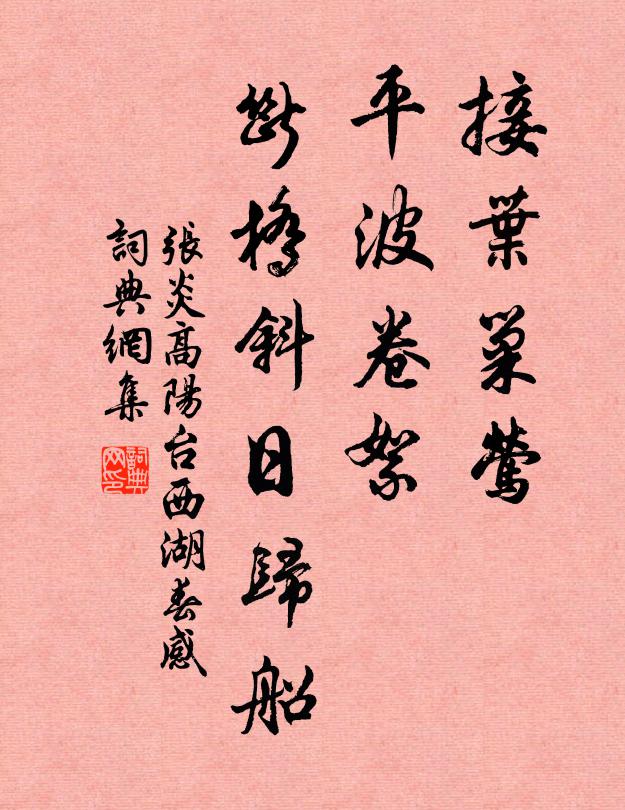 接葉巢鶯
平波卷絮
斷橋斜日歸船
張炎高陽台西湖春感
詞典網集
詞典網印